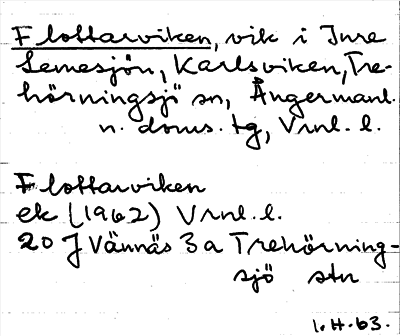 Flottarviken, vik i Inre
Lemesjön, Karlsviken, Tre-
hörningsjö sn, Ångermanl.
n. doms. tg, Vrnl. l.
Flottarviken
ek (1962) Vrnl. l.
20 J Vännäs 3 a Trehörning-
sjö stn
I.H. 63.